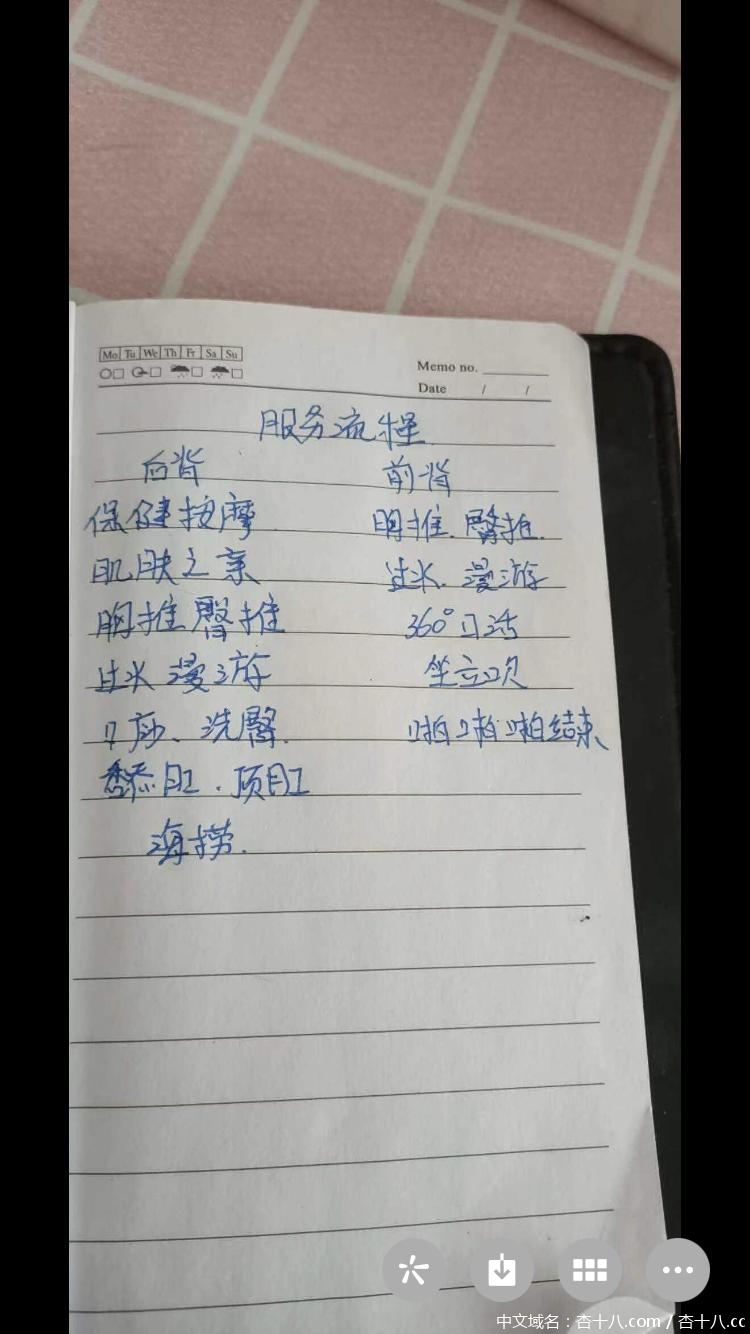 Mo Tu We Th Fr Sa Su
Memo no.
Date / /
服务流程
后背
保健按摩
肌肤之亲
胸推臀推
过水漫游
口砂、洗臀.
舔肛.顶肛
海捞.
前背
胸推.臀推.
过水.漫游
360°口活
坐立吹
啪啪啪结束、
中文域名：杏十八.com / 杏十八.cc